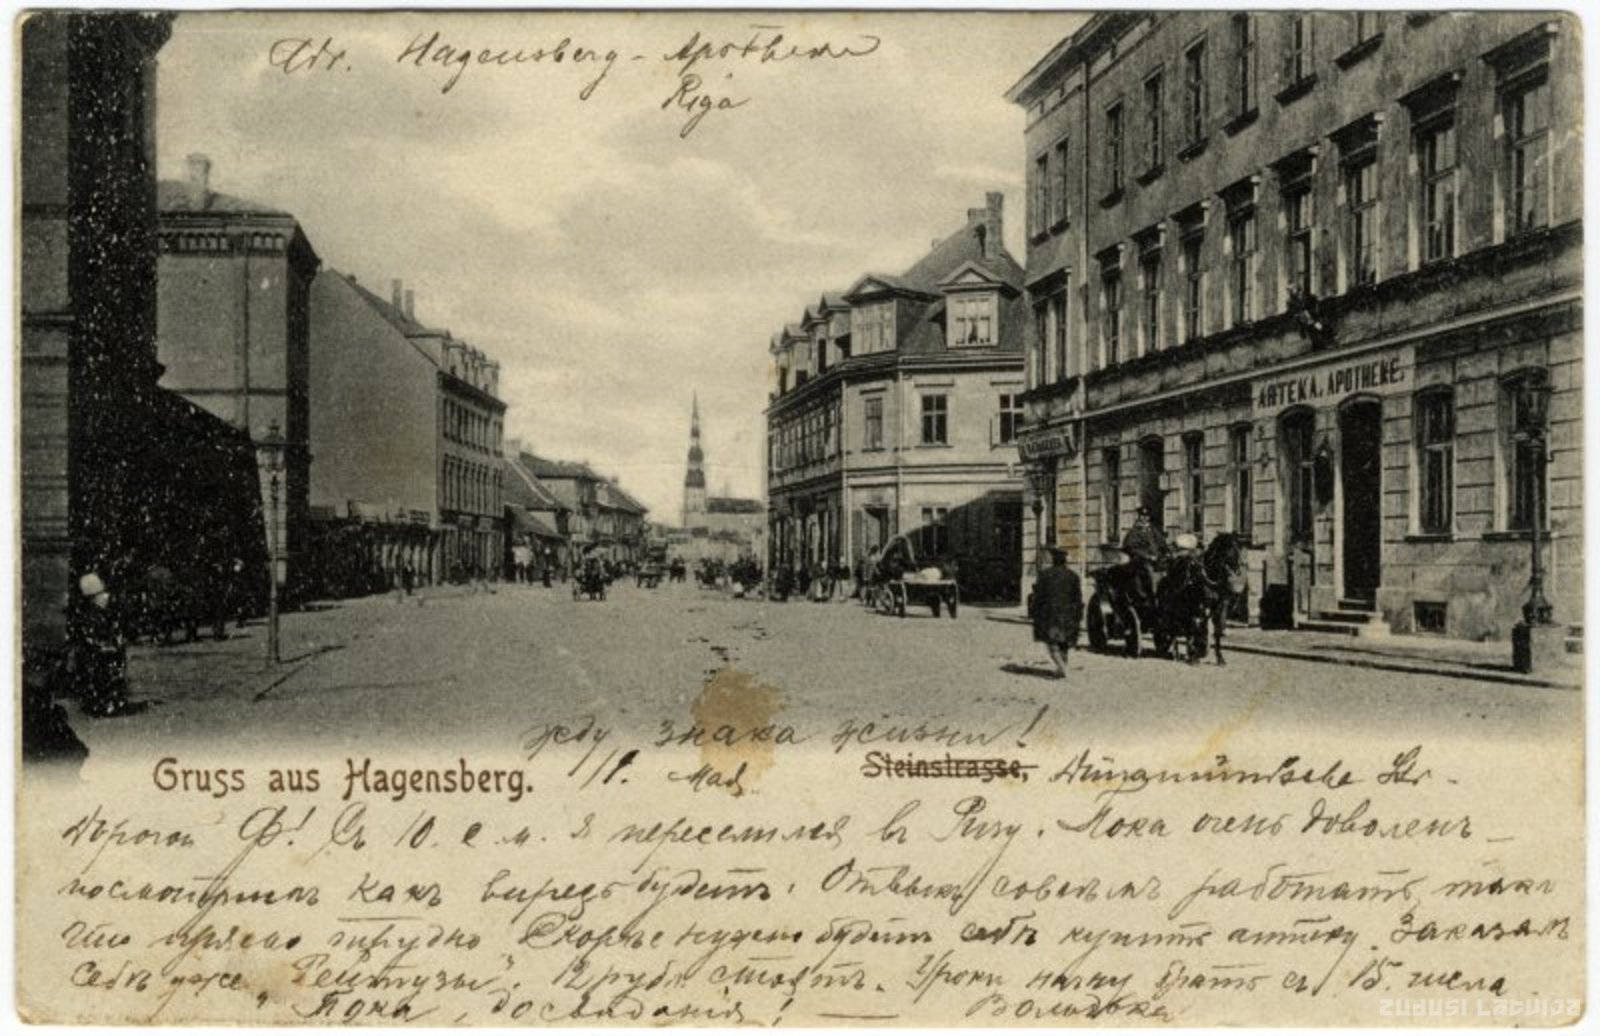 Adr. Hagensberg - Apotheke
Riga
АПТЕКА. APOTHEKE.
жду знака жизни!
Gruss aus Hagensberg.
Steinstrasse, Dünamünd'sche Str.
Дорогой Ф! Съ 10. с. м. я переселился въ Ригу. Пока очень доволенъ -
посмотримъ какъ впредь будетъ. Отвыкъ совсѣмъ работать, такъ
что прямо трудно. Скорѣе нужно будетъ себѣ купить аптеку. Заказалъ
себѣ уже "Рейтузы". 12 рубл. стоятъ. Уроки начну брать съ 15. числа
Пока, до свиданія! — Володька
ZUDUSI LATVIJA